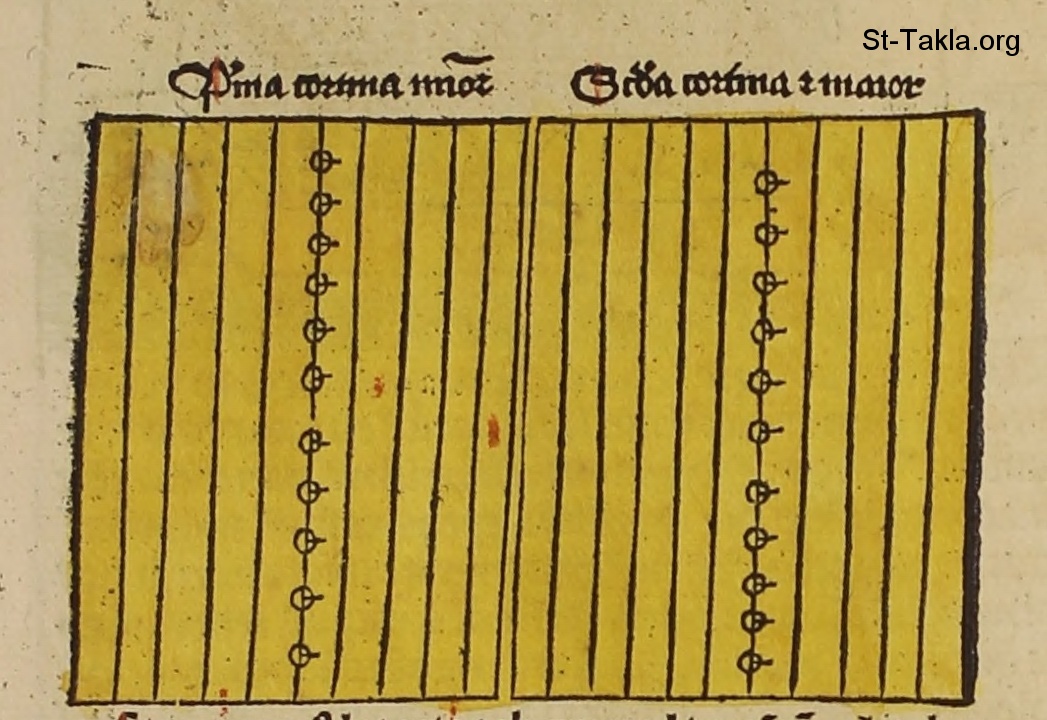 St-Takla.org
Pͥma cortina mīoꝛ Scďa cortina ⁊ maior